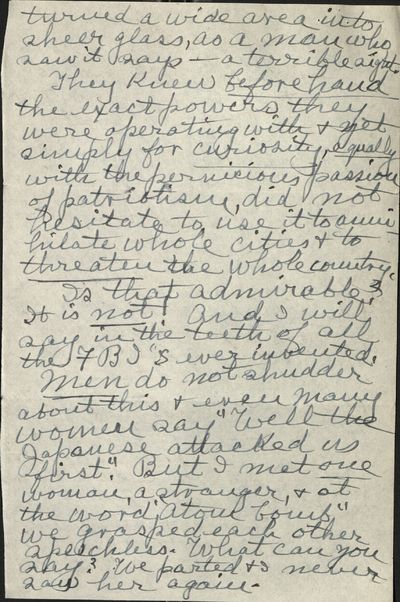 turned a wide area into
sheer glass, as a man who
saw it says — a terrible sight.
They knew beforehand
the exact powers they
were operating with & yet
simply for curiosity, equally
with the pernicious passion
of patriotism, did not
hesitate to use it to anni-
hilate whole cities & to
threaten the whole country.
Is that admirable?
It is not! And I will
say in the teeth of all
the FBI's ever invented.
Men do not shudder
about this & even many
women say "Well the
Japanese attacked us
first." But I met one
woman, a stranger, & at
the word "atom bomb"
we grasped each other
speechless. What can you
say? We parted & I never
saw her again.